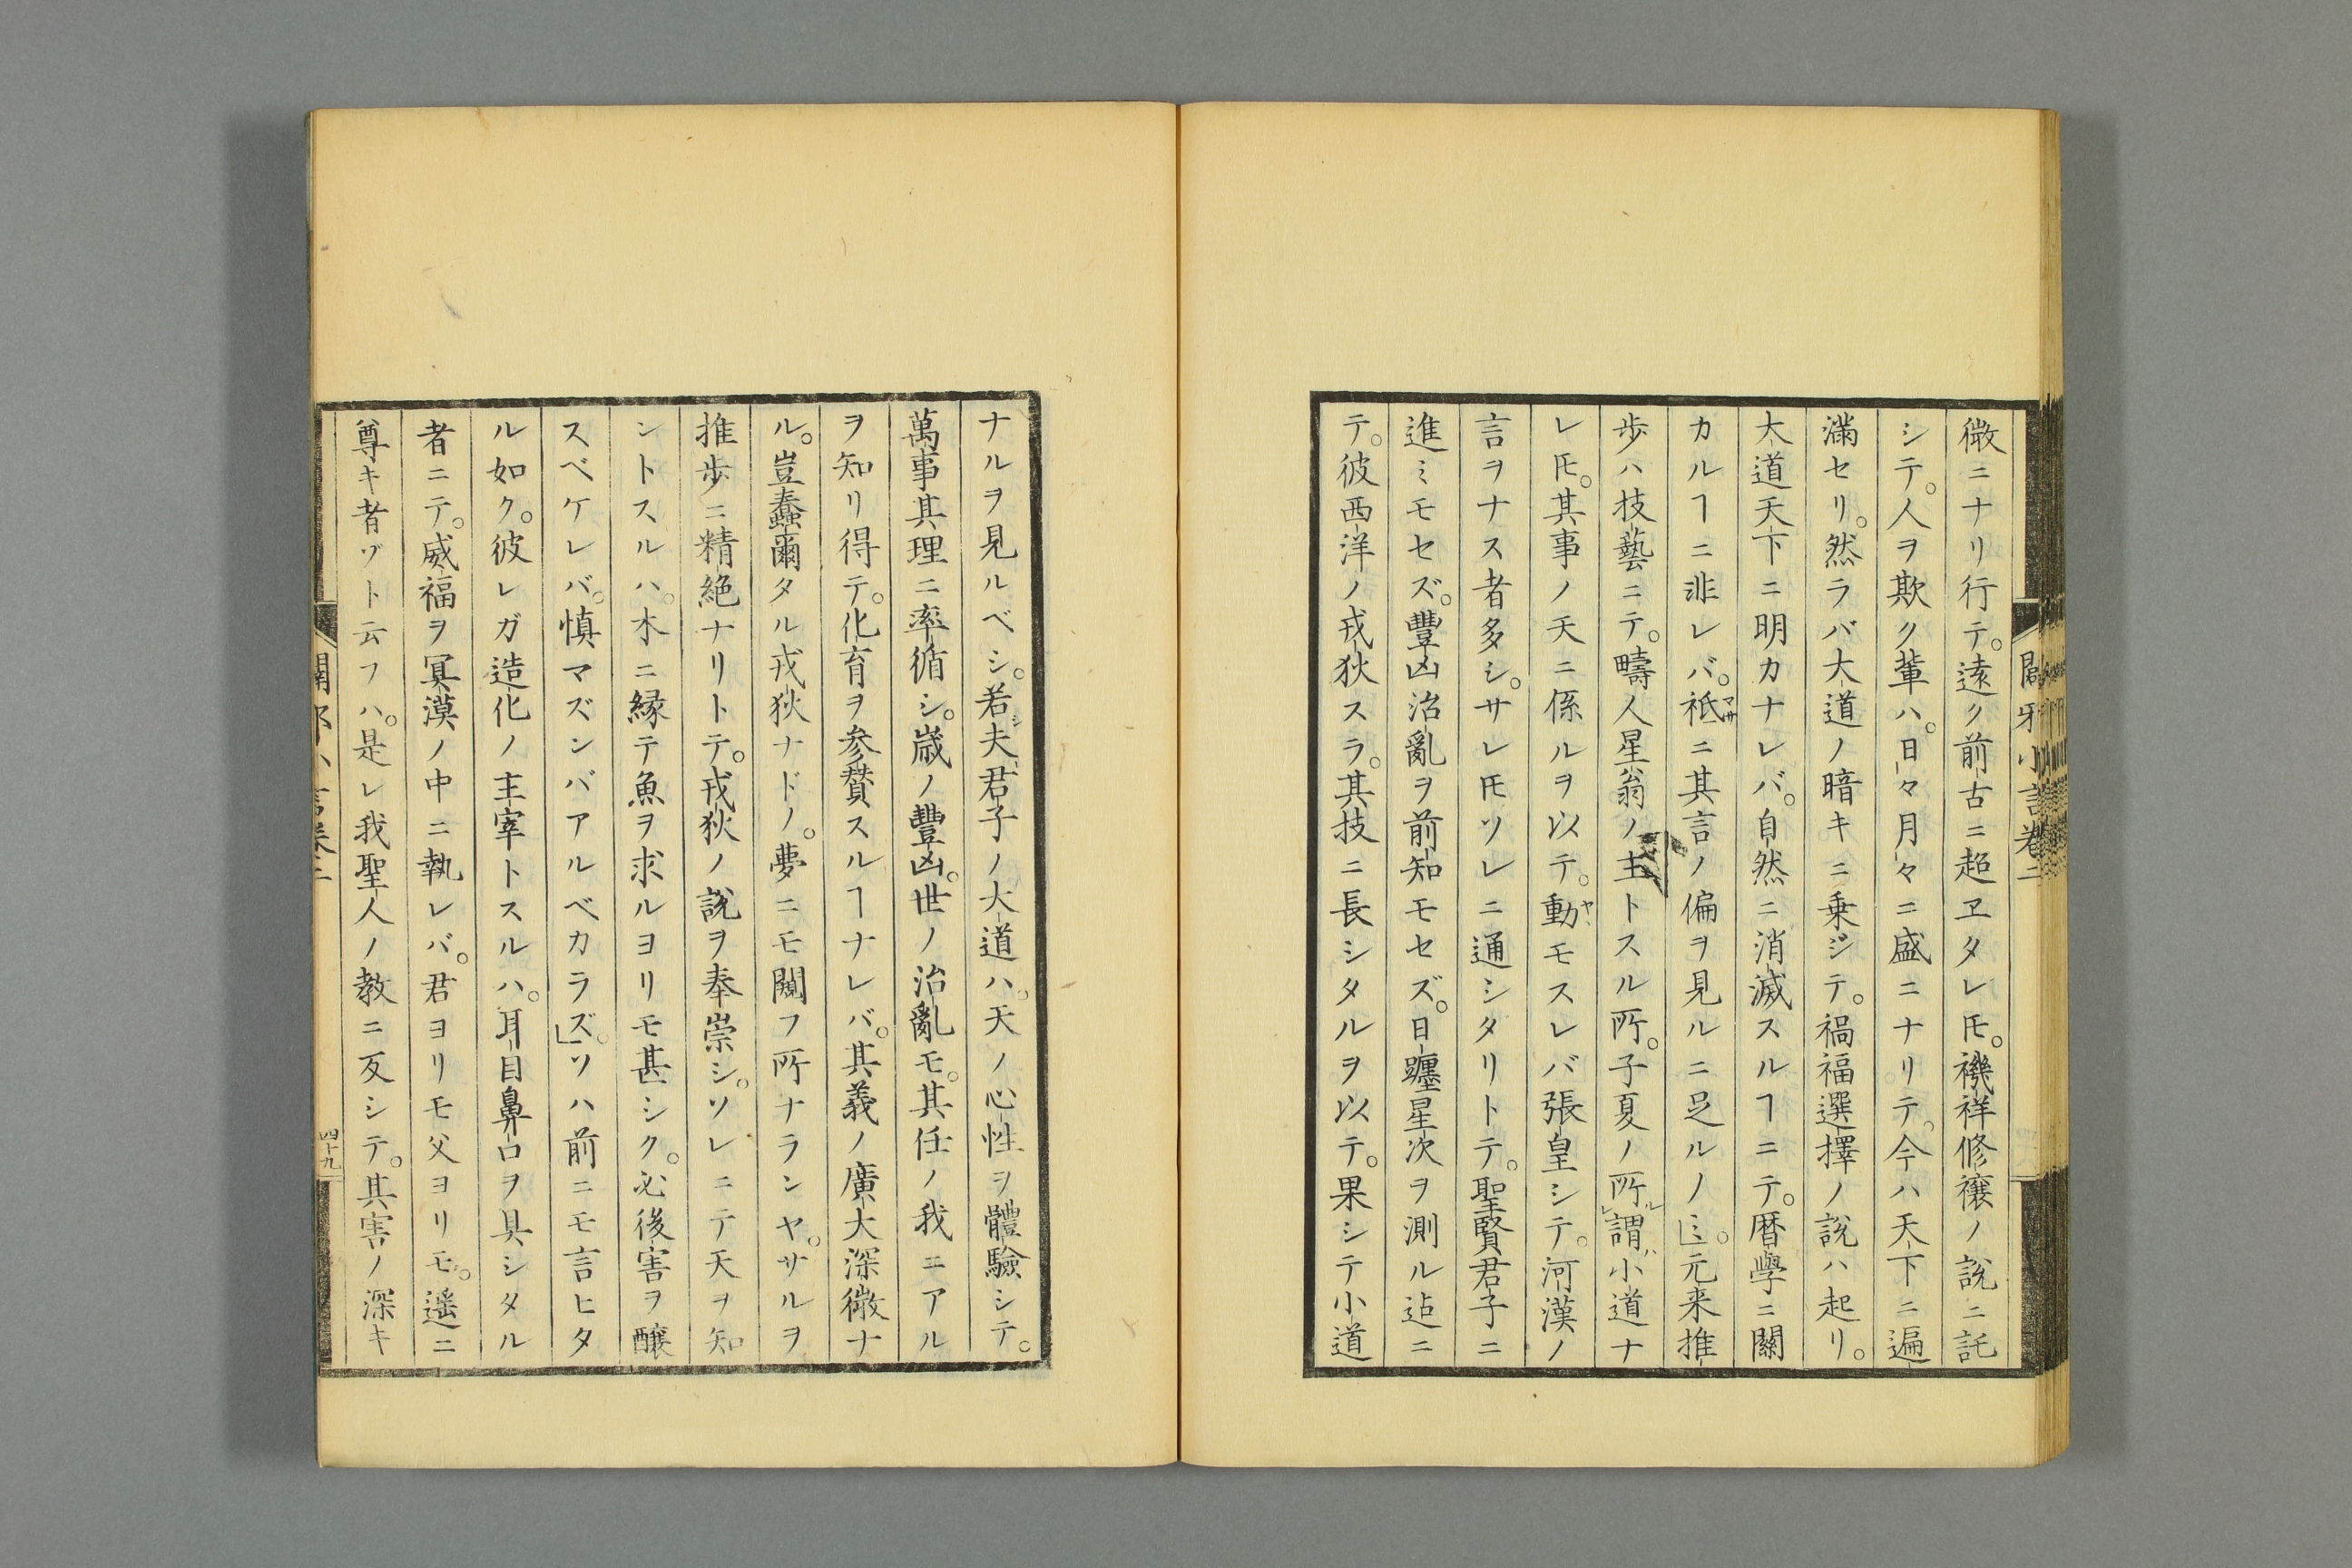 闢邪小言巻二
微ニナリ行テ。遠ク前古ニ超ヱタレ𪜈。禨祥修禳ノ説ニ託
シテ。人ヲ欺ク輩ハ。日々月々ニ盛ニナリテ。今ハ天下ニ遍
滿セリ。然ラバ大道ノ暗キニ乗ジテ。禍福選擇ノ説ハ起リ。
大道天下ニ明カナレバ。自然ニ消滅スルヿニテ。暦學ニ關
カルヿニ非レバ。祗マサニ其言ノ偏ヲ見ルニ足ルノミ」。元来推
歩ハ技藝ニテ。疇人星翁ノ主トスル所。子夏ノ所ルレ謂ハ小道ナ
レ𪜈。其事ノ天ニ係ルヲ以テ。動ヤヽモスレバ張皇シテ。河漢ノ
言ヲナス者多シ。サレ𪜈ソレニ通シタリトテ。聖賢君子ニ
進ミモセズ。豐凶治亂ヲ前知モセズ。日躔星次ヲ測ル迠ニ
テ。彼西洋ノ戎狄スラ。其技ニ長シタルヲ以テ。果シテ小道
ナルヲ見ルベシ。若シ夫君子ノ大道ハ。天ノ心性ヲ體驗シテ。
萬事其理ニ率循シ。歳ノ豐凶。世ノ治亂モ。其任ノ我ニアル
ヲ知リ得テ。化育ヲ参賛スルヿナレバ。其義ノ廣大深微ナ
ル。豈蠢爾タル戎狄ナドノ。夢ニモ闚フ所ナランヤ。サルヲ
推歩ニ精絶ナリトテ。戎狄ノ説ヲ奉崇シ。ソレニテ天ヲ知
ントスルハ。木ニ縁テ魚ヲ求ルヨリモ甚シク。必後害ヲ醸
スベケレバ。慎マズンバアルベカラズ。」ソハ前ニモ言ヒタ
ル如ク。彼レガ造化ノ主宰トスルハ。耳目鼻口ヲ具シタル
者ニテ。威福ヲ冥漠ノ中ニ執レバ。君ヨリモ父ヨリモ。遥ニ
尊キ者ヅト云フハ。是レ我聖人ノ教ニ反シテ。其害ノ深キ
闢邪小言巻二
四十九